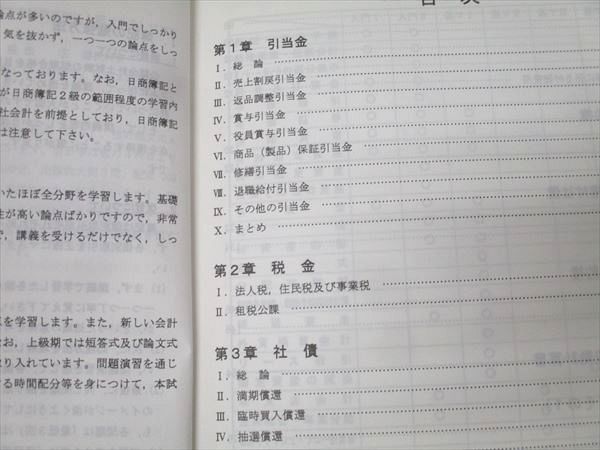 目 次
第1章 引当金
Ⅰ．総 論
Ⅱ．売上割戻引当金
Ⅲ．返品調整引当金
Ⅳ．賞与引当金
Ⅴ．役員賞与引当金
Ⅵ．商品（製品）保証引当金
Ⅶ．修繕引当金
Ⅷ．退職給付引当金
Ⅸ．その他の引当金
Ⅹ．まとめ
第2章 税 金
Ⅰ．法人税，住民税及び事業税
Ⅱ．租税公課
第3章 社 債
Ⅰ．総 論
Ⅱ．満期償還
Ⅲ．臨時買入償還
Ⅳ．抽選償還
論点が多いのですが，入門でしっかり
気を抜かず，一つ一つの論点をしっ
なっております。なお，日商簿記と
が日商簿記2級の範囲程度の学習内
社会計を前提としており，日商簿記
は注意して下さい。
いたほぼ全分野を学習します。基礎
性が高い論点ばかりですので，非常
ず，講義を受けるだけでなく，しっ
点を学習します。また，新しい会計
なお，上級期では短答式及び論文式
取り入れています。問題演習を通じ
ける時間配分等を身につけて，本試